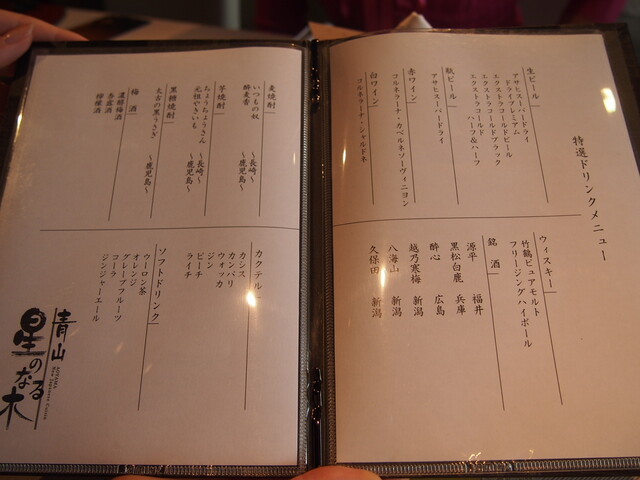 特選ドリンクメニュー
生ビール
アサヒスーパードライ
ドライプレミアム
エクストラコールドビール
エクストラコールドブラック
エクストラコールド
ハーフ&ハーフ
瓶ビール
アサヒスーパードライ
赤ワイン
コルネラーナ・カベルネソーヴィニヨン
白ワイン
コルネラーナ・シャルドネ
ウィスキー
竹鶴ピュアモルト
フリージングハイボール
銘酒
源平 福井
黒松白鹿 兵庫
酔心 広島
越乃寒梅 新潟
八海山 新潟
久保田 新潟
麦焼酎
いつもの奴 ～長崎～
酔麦香 ～鹿児島～
芋焼酎
ちょうちょうさん ～長崎～
元祖やきいも ～鹿児島～
黒糖焼酎
太古の黒うさぎ ～鹿児島～
梅酒
濃醇梅酒
杏露酒
檸檬酒
カクテル
カシス
カンパリ
ウォッカ
ジン
ピーチ
ライチ
ソフトドリンク
ウーロン茶
オレンジ
グレープフルーツ
コーラ
ジンジャーエール
青山
星のなる木
AOYAMA
New Japanese Cuisine